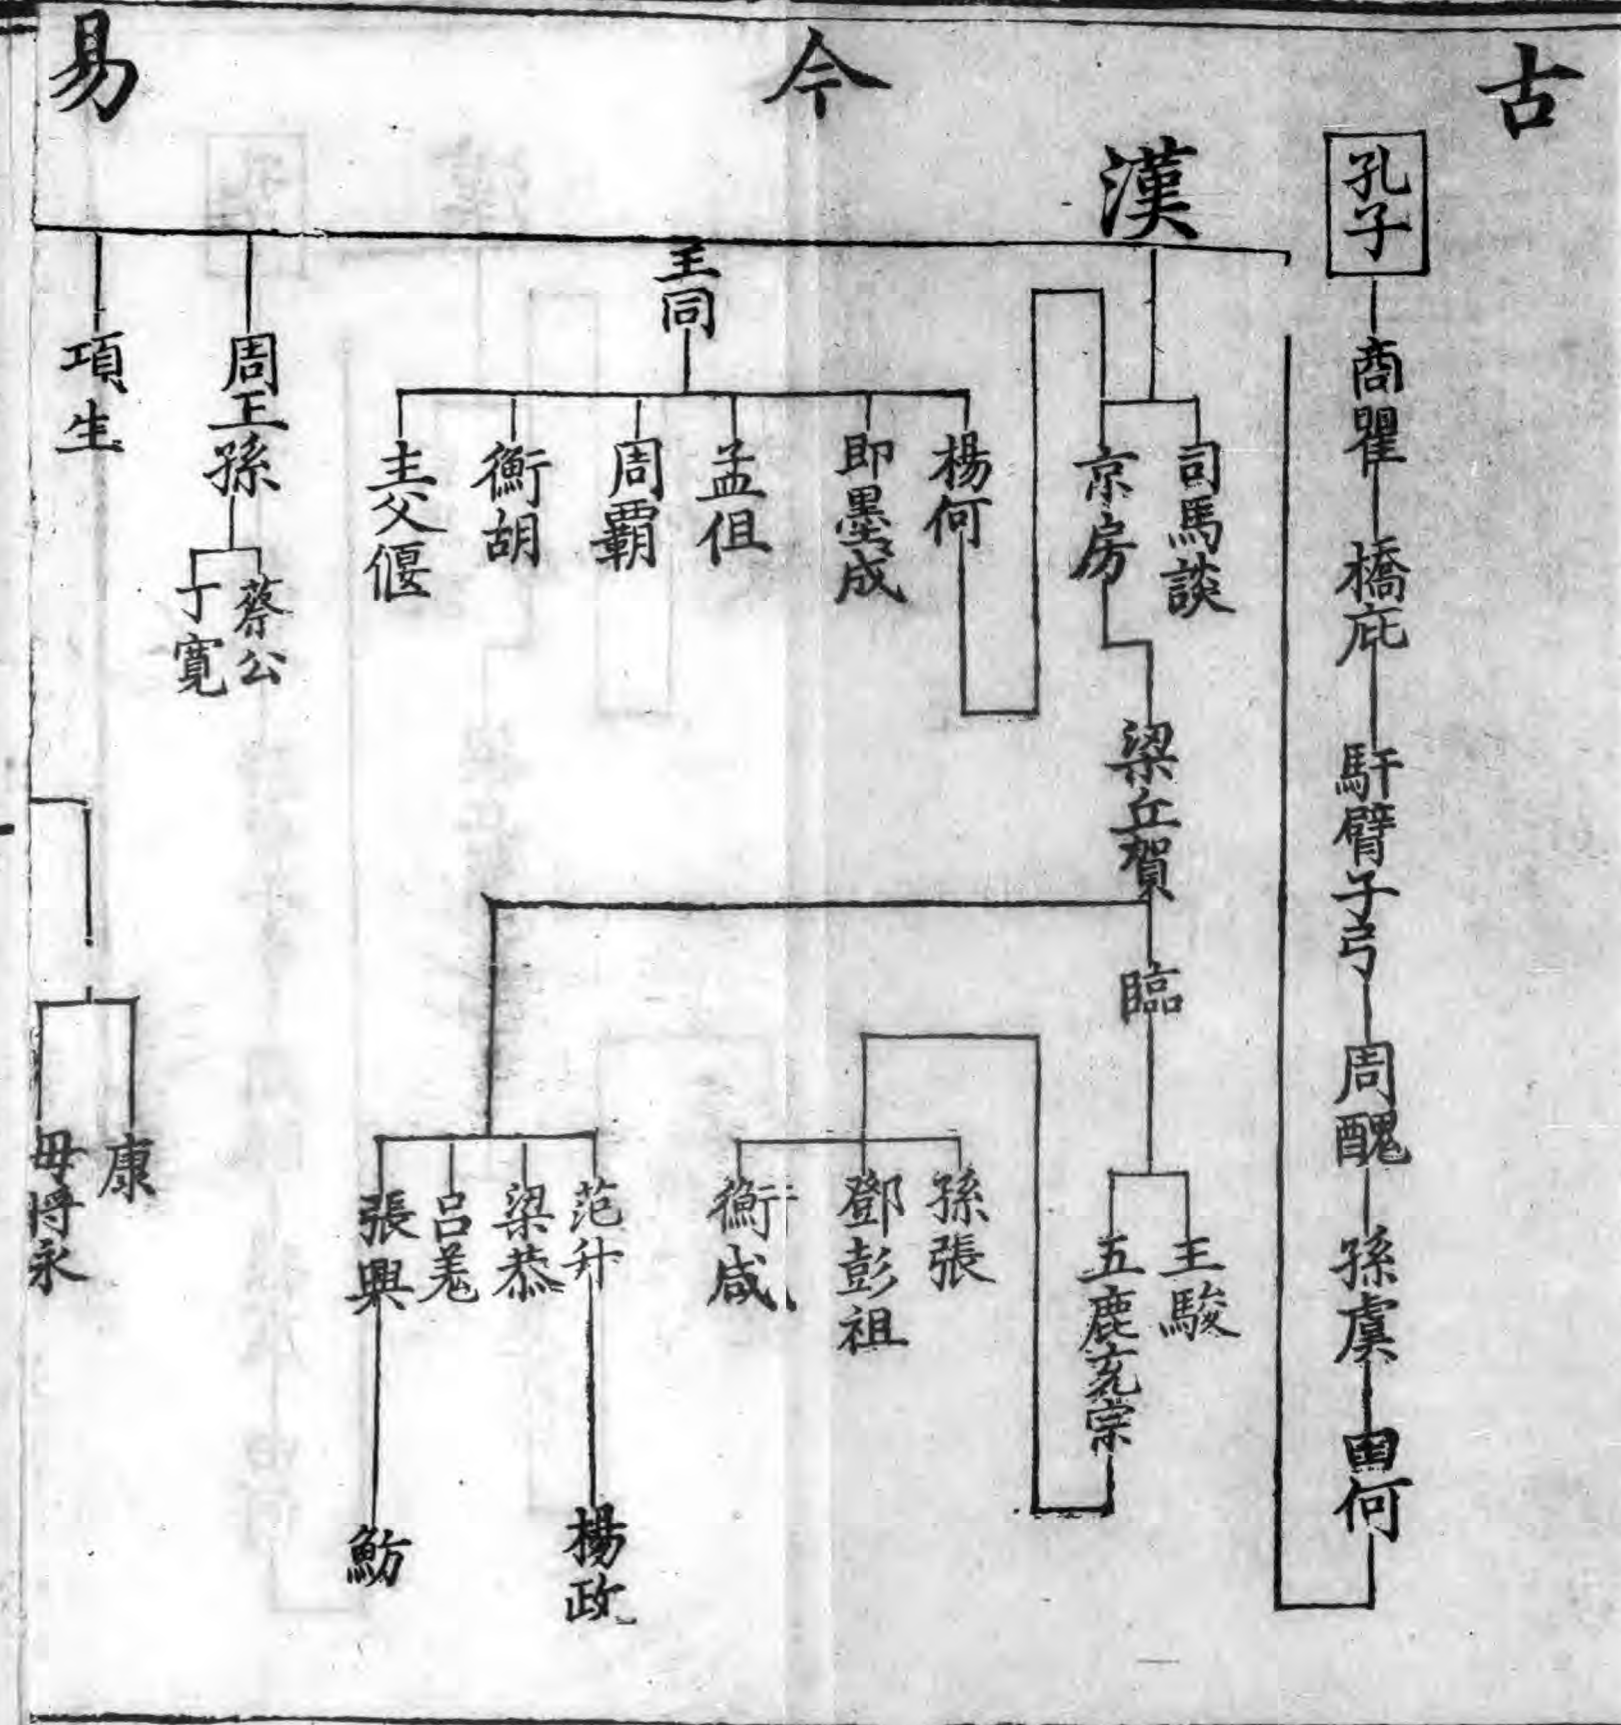 古今易
孔子
商瞿
橋庇
馯臂子弓
周醜
孫虞
田何
漢
司馬談
京房
梁丘賀
臨
王駿
五鹿充宗
孫張
鄧彭祖
衡咸
王同
楊何
即墨成
孟但
周霸
衡胡
主父偃
范升
梁恭
呂羌
張興
楊政
魴
周王孫
蔡公
丁寬
項生
康
毋將永